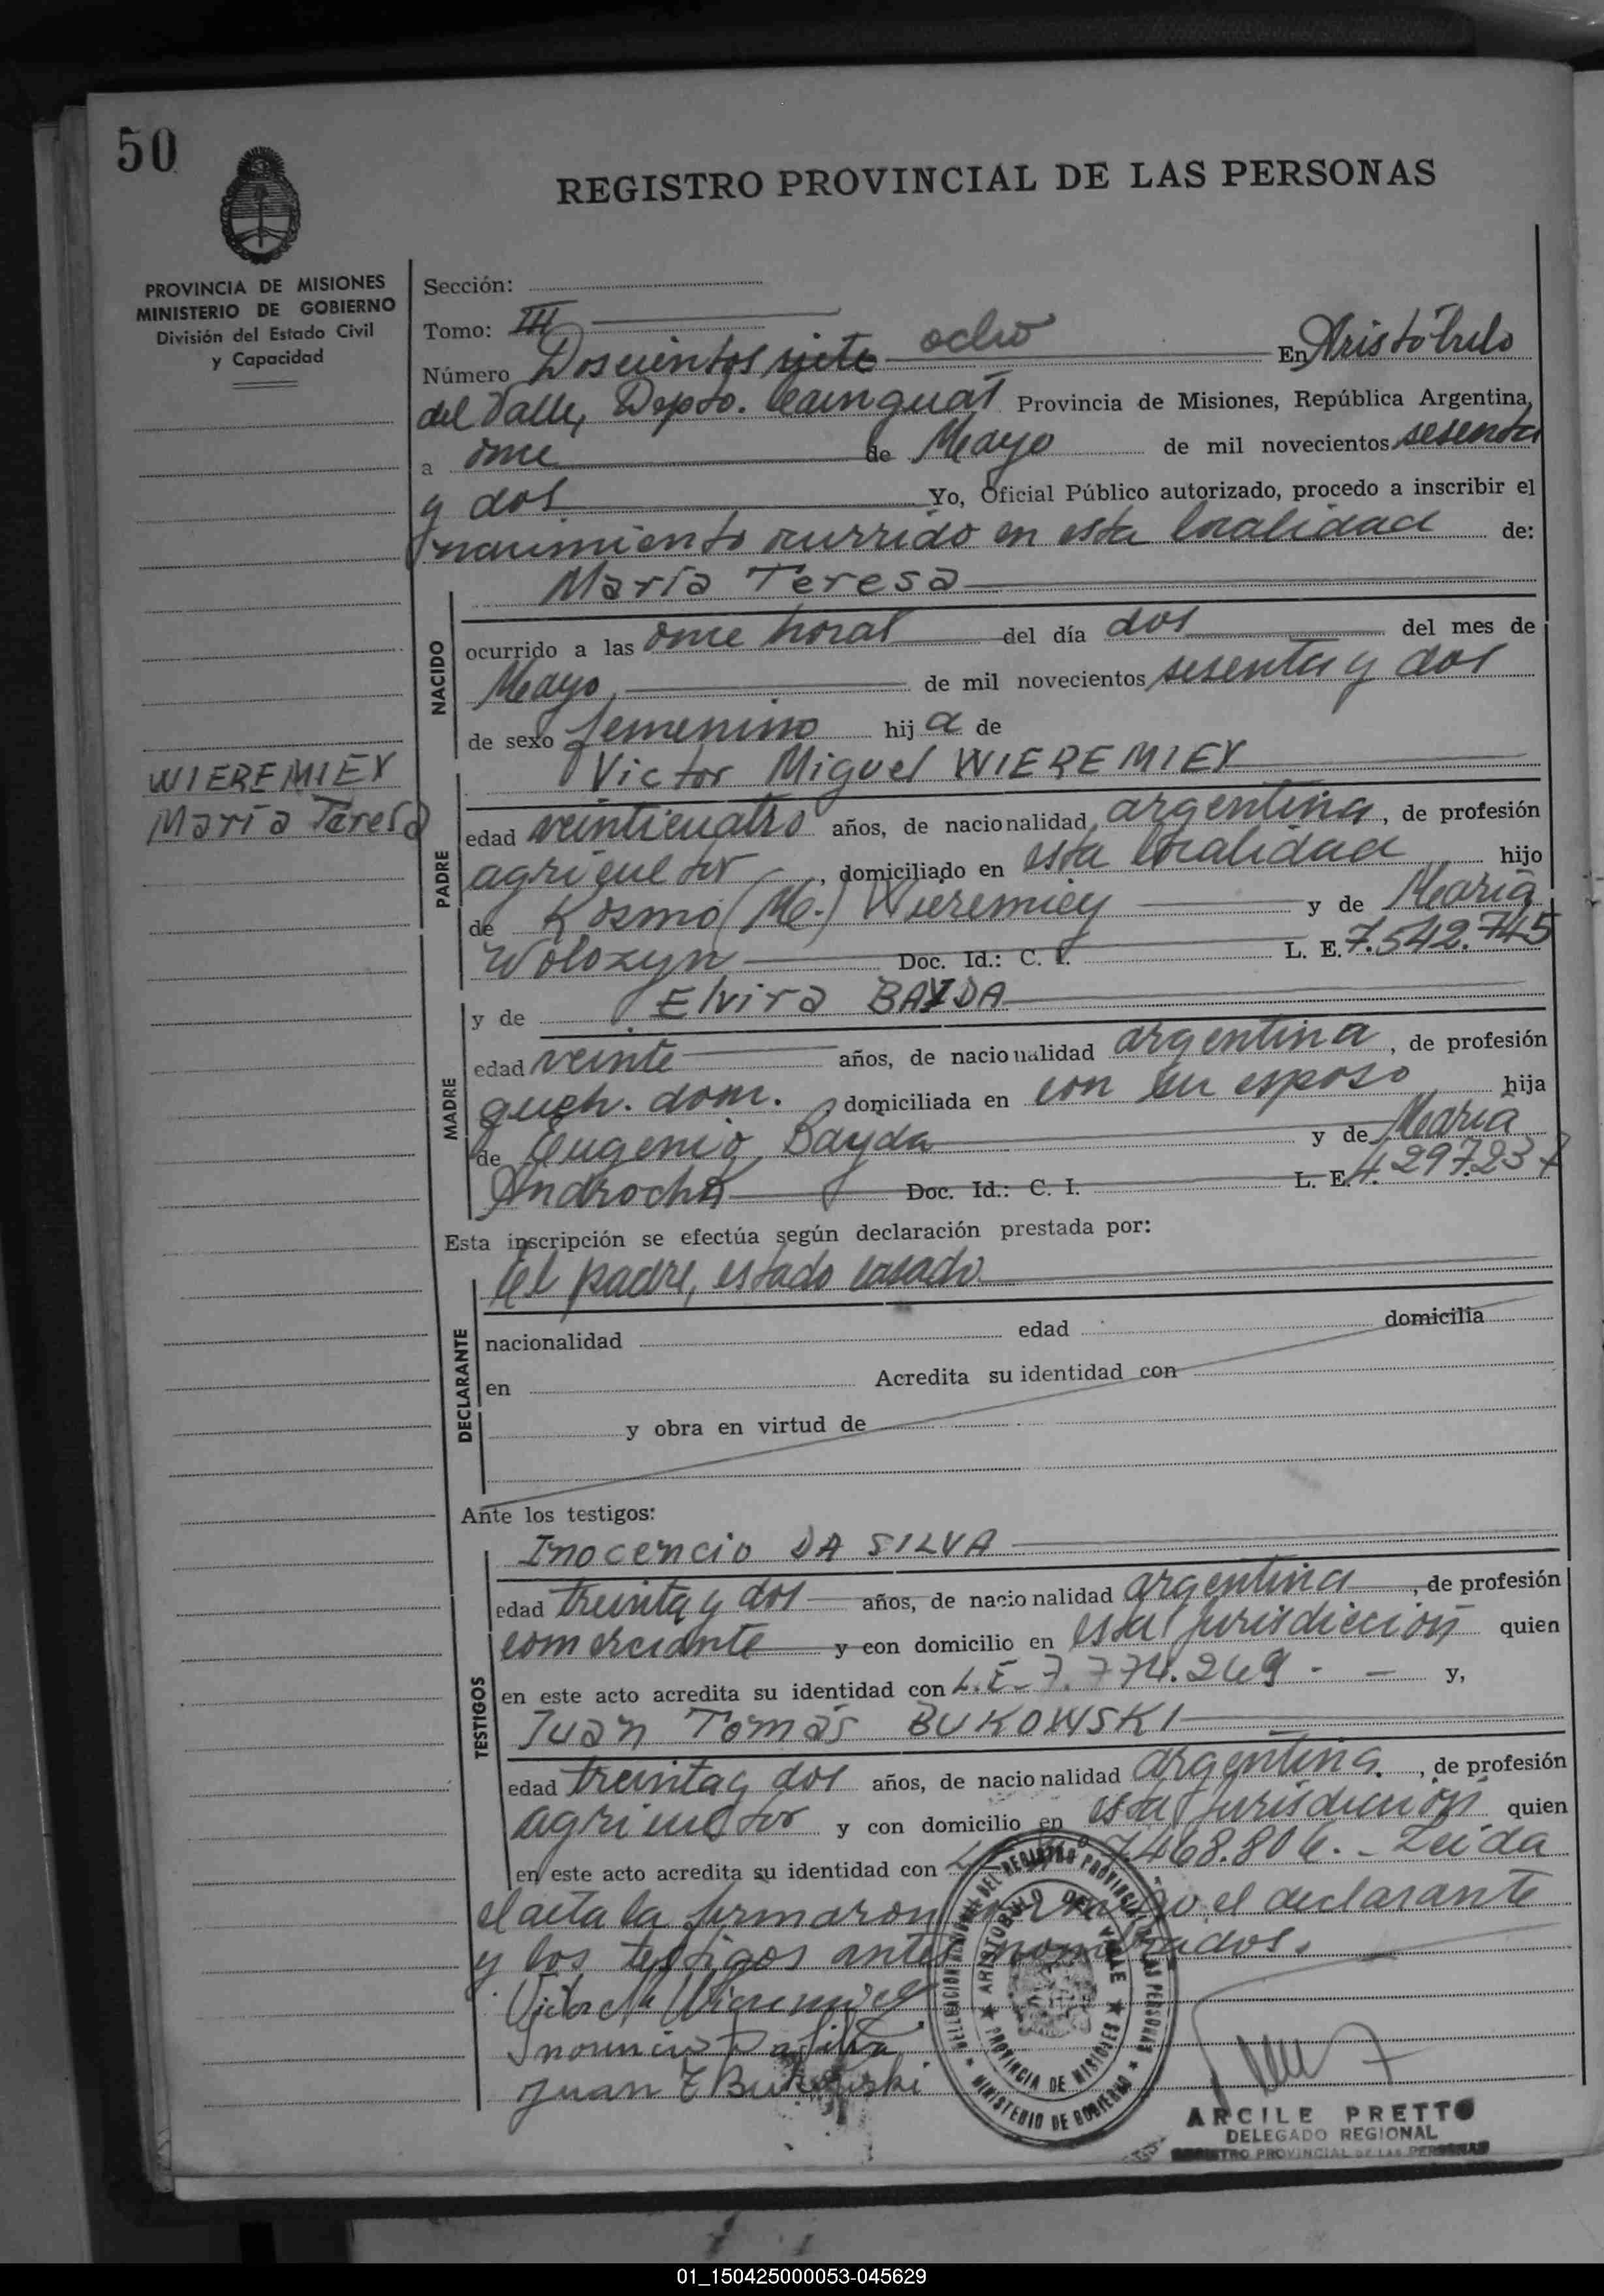 50
REGISTRO PROVINCIAL DE LAS PERSONAS
PROVINCIA DE MISIONES
MINISTERIO DE GOBIERNO
División del Estado Civil
y Capacidad
Sección:
Tomo: III
Número Doscientos siete ocho En Aristóbulo
del Valle, Depto. Cainguás Provincia de Misiones, República Argentina,
a once de Mayo de mil novecientos sesenta
y dos Yo, Oficial Público autorizado, procedo a inscribir el
nacimiento ocurrido en esta localidad de:
María Teresa
NACIDO
ocurrido a las once horas del día dos del mes de
Mayo de mil novecientos sesenta y dos
de sexo femenino hij a de
Victor Miguel WIEREMIEY
WIEREMIEY
María Teresa
PADRE
edad veinticuatro años, de nacionalidad argentina, de profesión
agricultor, domiciliado en esta localidad hijo
de Kosmo (M.) Wieremiey y de María
Wolozyn Doc. Id.: C. I. L. E. 7.542.745
y de Elvira BAYDA
MADRE
edad veinte años, de nacionalidad argentina, de profesión
queh. dom., domiciliada en con su esposo hija
de Eugenio Bayda y de María
Doc. Id.: C. I. L. E. 4.297.237
Esta inscripción se efectúa según declaración prestada por:
el padre, estado casado
DECLARANTE
nacionalidad edad domicilia
en Acredita su identidad con
y obra en virtud de
Ante los testigos:
Inocencio DA SILVA
TESTIGOS
edad treinta y dos años, de nacionalidad argentina, de profesión
comerciante y con domicilio en esta jurisdicción quien
en este acto acredita su identidad con L.E. 7.774.249 - - y,
Juan Tomás BUKOWSKI
edad treinta y dos años, de nacionalidad argentina, de profesión
agricultor y con domicilio en esta jurisdicción quien
en este acto acredita su identidad con 7.468.806.- Leida
el acta la firmaron el declarante
y los testigos antes nombrados.
Victor M. Wieremiey
Inocencio Da Silva
Juan T Bukowski
DELEGACION REGIONAL DEL REGISTRO PROVINCIAL DE LAS PERSONAS
ARISTOBULO DEL VALLE
PROVINCIA DE MISIONES
MINISTERIO DE GOBIERNO
ARCILE PRETTO
DELEGADO REGIONAL
REGISTRO PROVINCIAL DE LAS PERSONAS
01_150425000053-045629